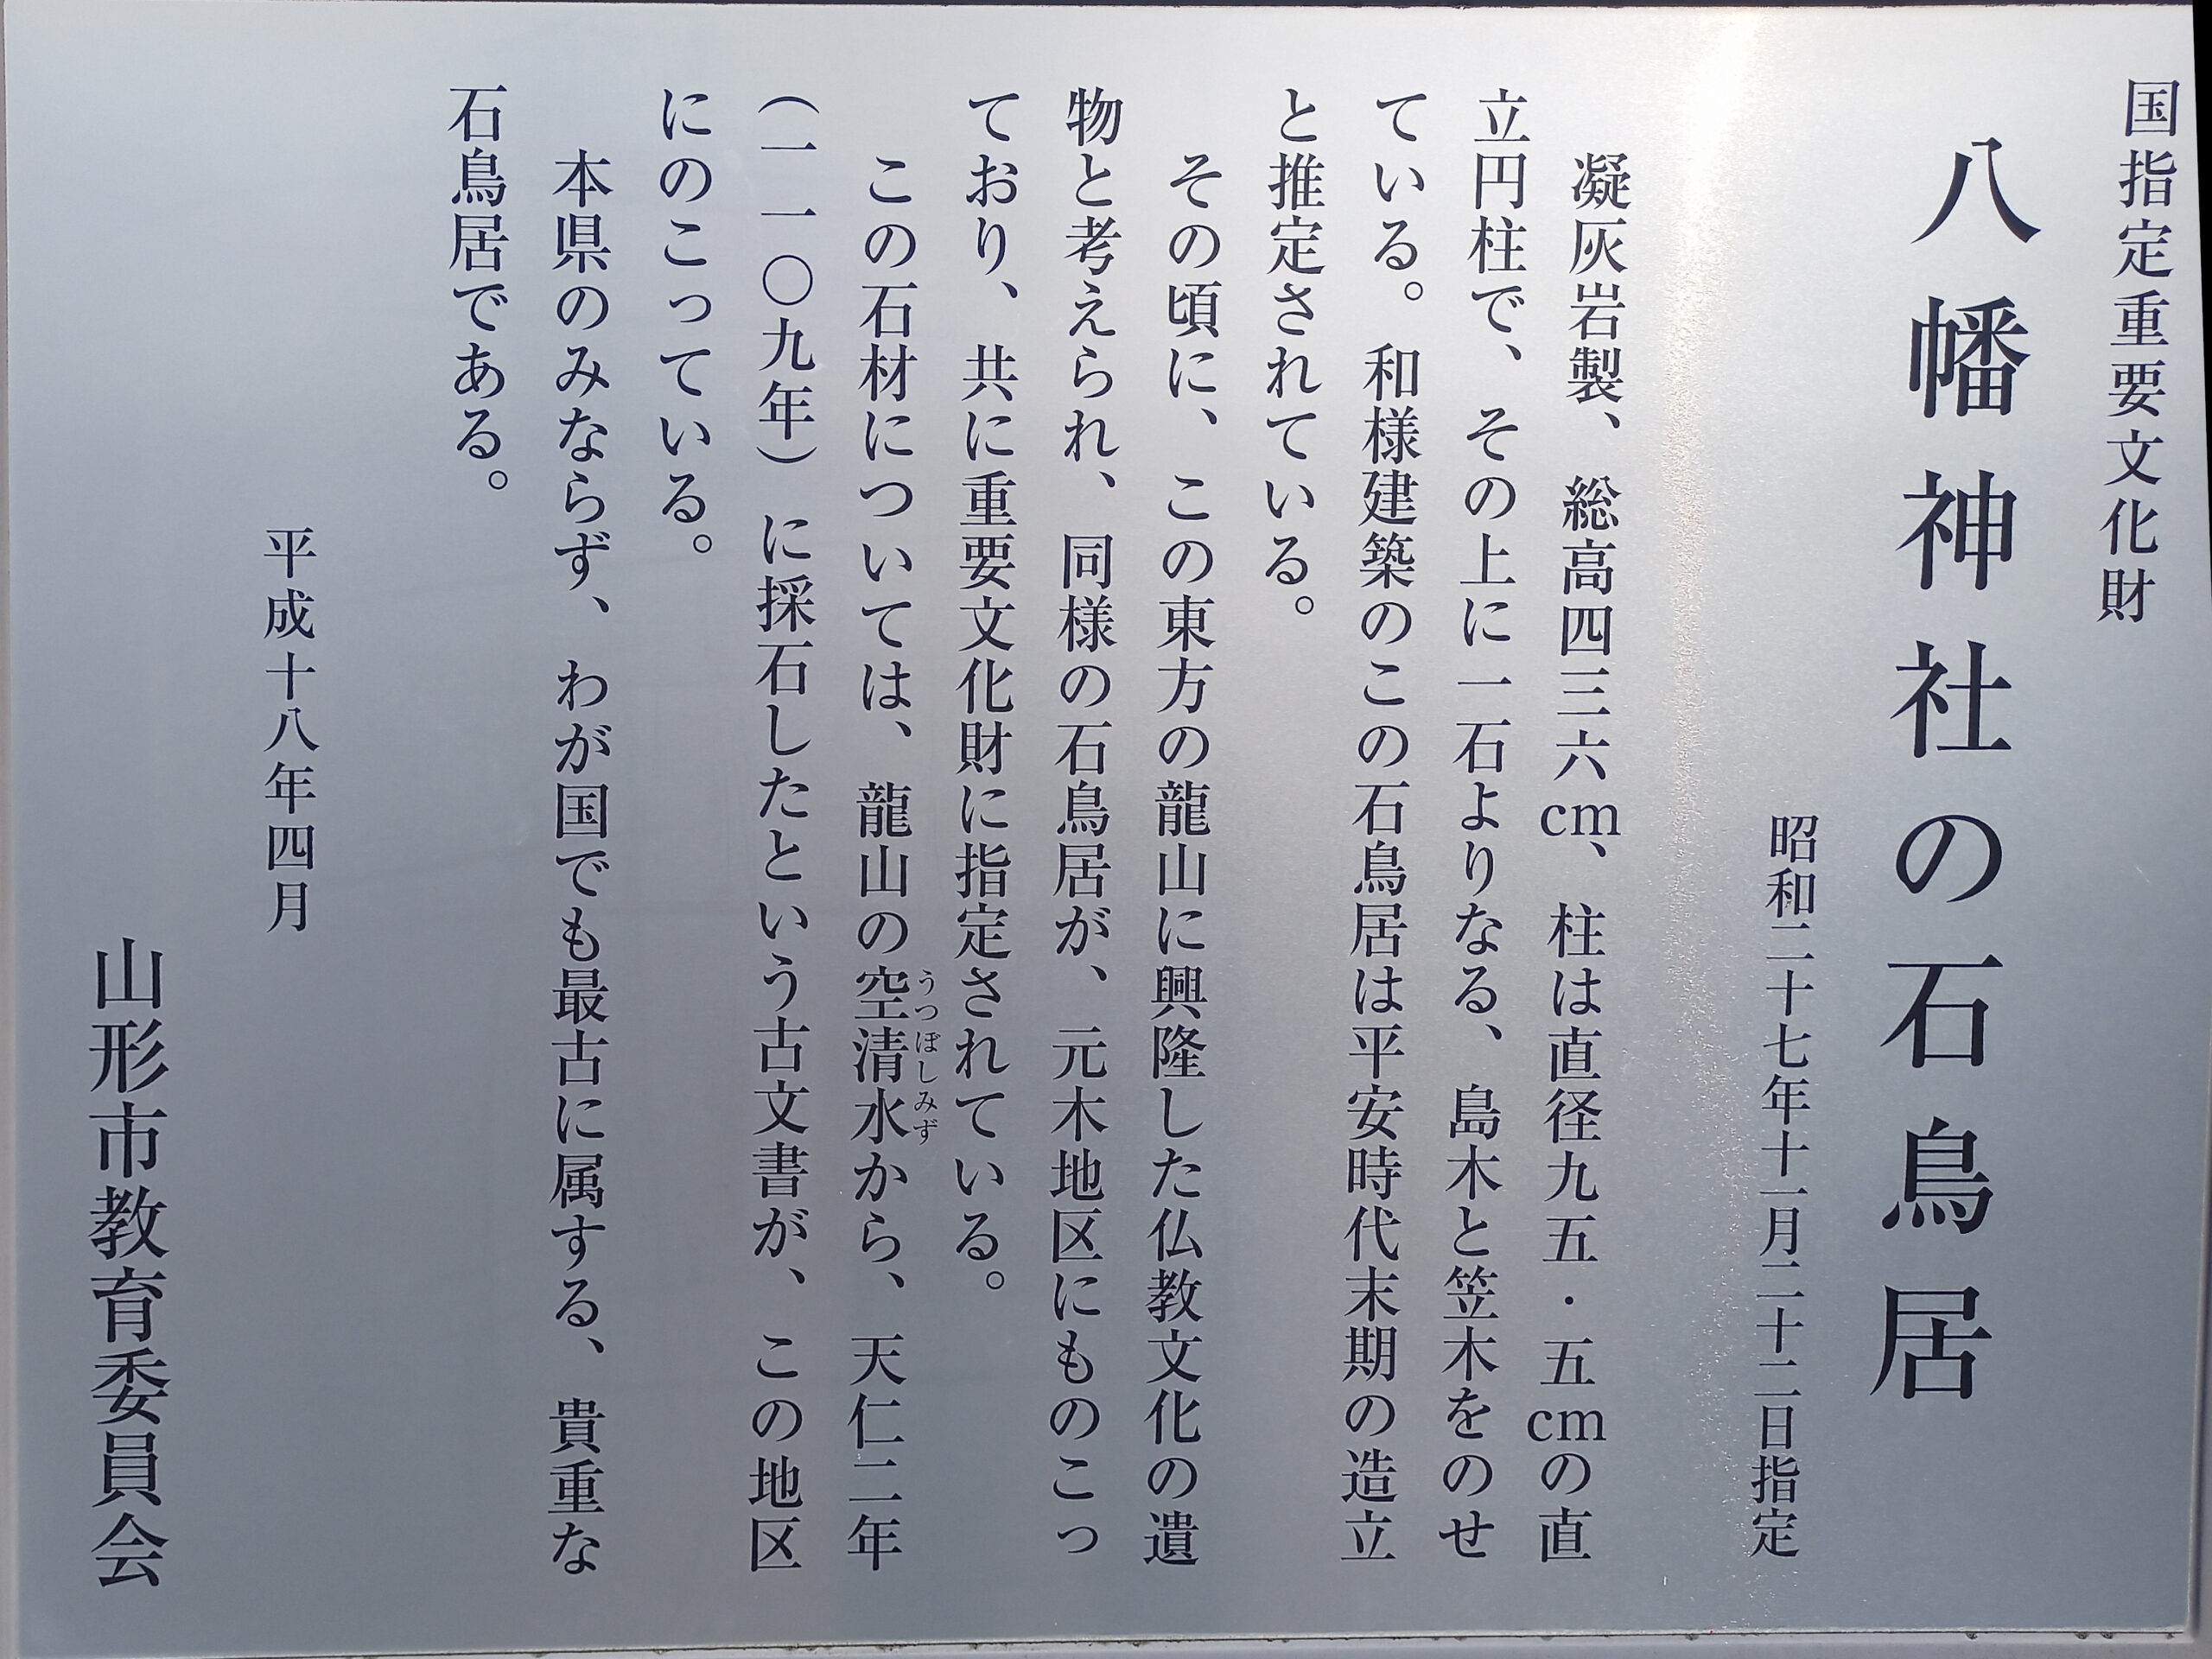 国指定重要文化財
八幡神社の石鳥居
昭和二十七年十一月二十二日指定
凝灰岩製、総高四三六cm、柱は直径九五・五cmの直
立円柱で、その上に一石よりなる、島木と笠木をのせ
ている。和様建築のこの石鳥居は平安時代末期の造立
と推定されている。
その頃に、この東方の龍山に興隆した仏教文化の遺
物と考えられ、同様の石鳥居が、元木地区にものこっ
ており、共に重要文化財に指定されている。
この石材については、龍山の空清水から、天仁二年
うつぼしみず
(一一〇九年)に採石したという古文書が、この地区
にのこっている。
本県のみならず、わが国でも最古に属する、貴重な
石鳥居である。
平成十八年四月
山形市教育委員会